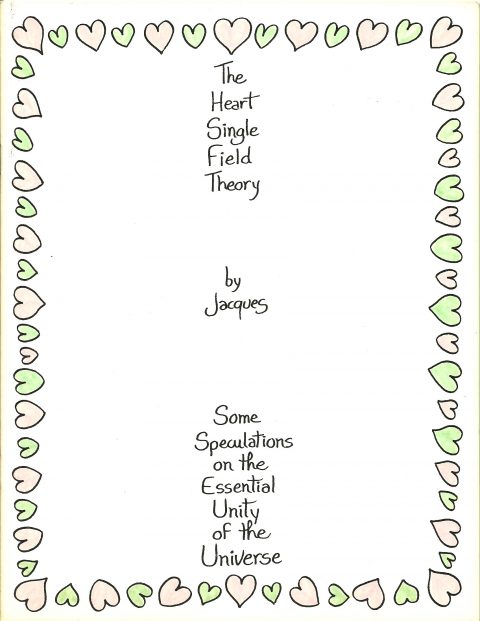 The
Heart
Single
Field
Theory
by
Jacques
Some
Speculations
on the
Essential
Unity
of the
Universe